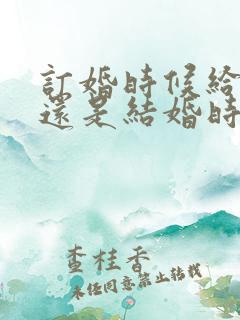 訂婚時候給
還是結婚時
查桂香
未任同意禁止轉載